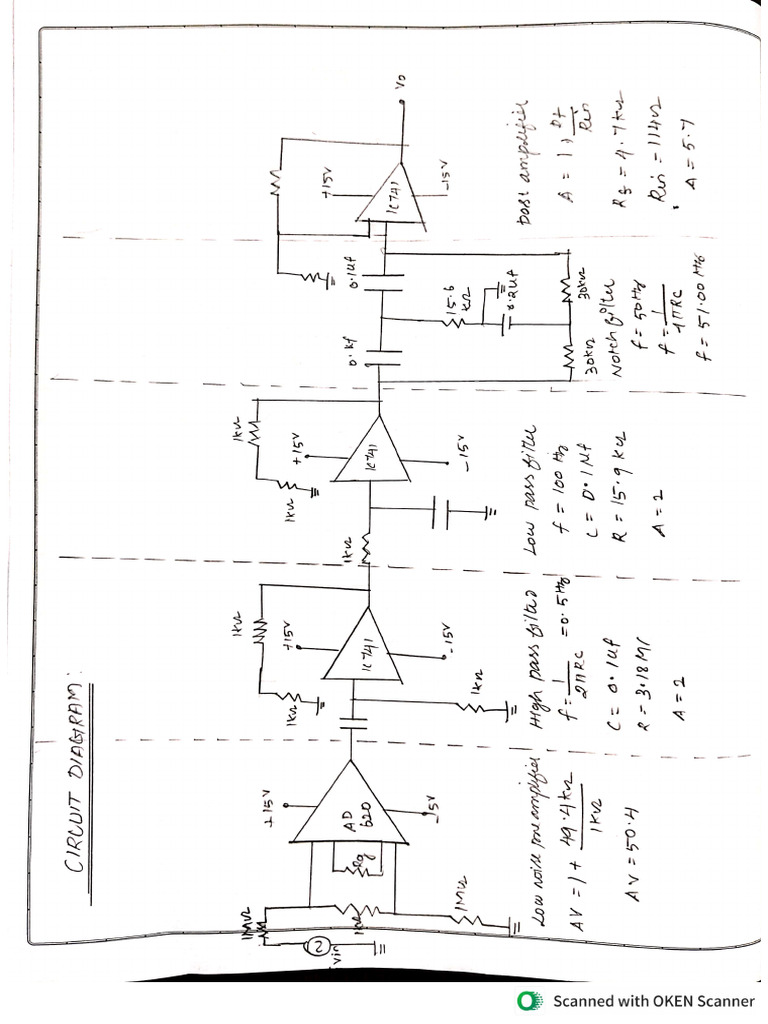 CIRCUIT DIAGRAM:
1MΩ
Vin
1kΩ
1MΩ
Rg
AD
620
+15V
-15V
Low noise pre amplifier
AV = 1 + 49.4kΩ
1kΩ
AV = 50.4
1kΩ
1kΩ
+15V
IC741
-15V
1kΩ
High pass filter
f = 1 = 0.5Hz
2πRC
C = 0.1μf
R = 3.18M
A = 2
1kΩ
1kΩ
1kΩ
+15V
IC741
-15V
Low pass filter
f = 100 Hz
C = 0.1μf
R = 15.9 kΩ
A = 2
0.1μf
0.1μf
15.6
kΩ
30kΩ
30kΩ
Notch filter
f = 50Hz
f = 1
4πRC
f = 51.00 Hz
+15V
IC741
-15V
Vo
post amplifier
A = 1 + Rf
Rin
Rf = 4.7kΩ
Rin = 114Ω
A = 5.7
Scanned with OKEN Scanner